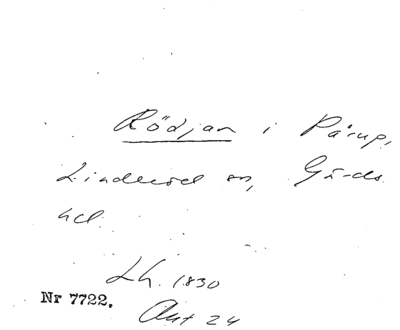 Rödjan i Pårup,
Linderöd sn, Gärds
hd.
Lh. 1830
Nr 7722.
Akt 24